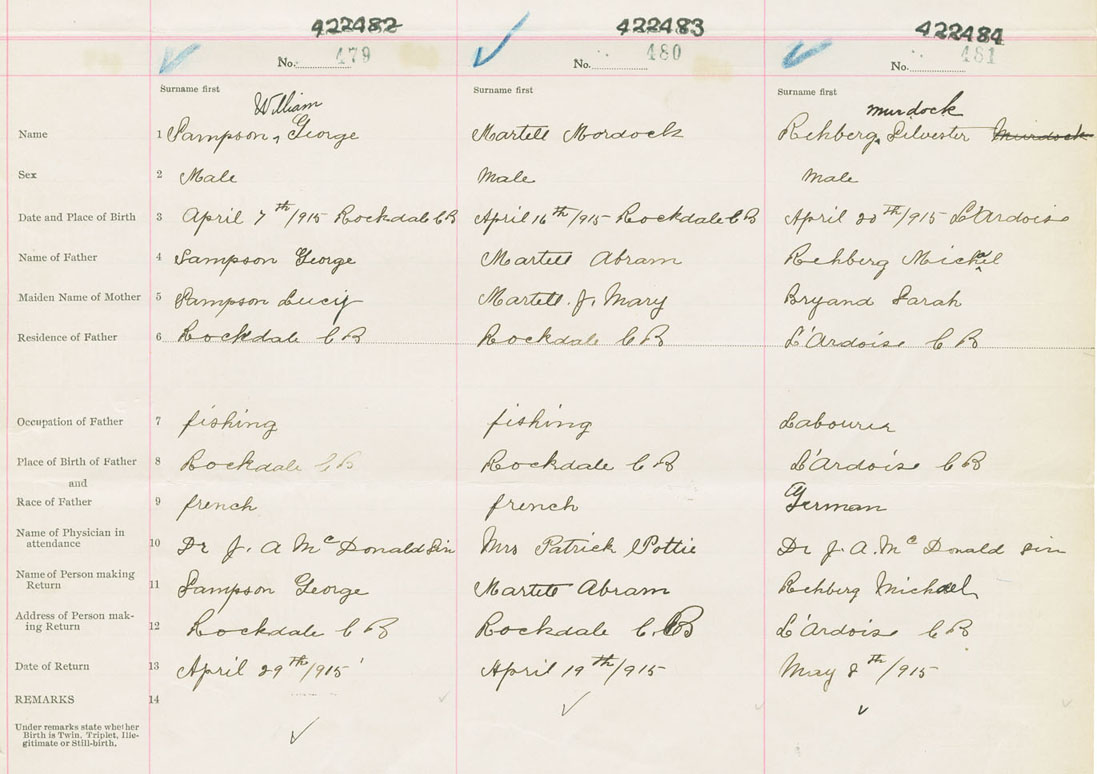 422482 422483 422484
No. 479 No. 480 No. 481
Surname first Surname first Surname first
William murdock
Name 1 Sampson, George Martell Mordock Rehberg, Silvester Murdock
Sex 2 Male male male
Date and Place of Birth 3 April 7th/915 Rockdale C B April 16th/915 Rockdale C B April 20th/915 L'Ardoise
Name of Father 4 Sampson George Martell Abram Rehberg Michael
Maiden Name of Mother 5 Sampson Lucy Martell. J. Mary Bryand Sarah
Residence of Father 6 Rockdale C B Rockdale C B L'Ardoise C B
Occupation of Father 7 fishing fishing Labourer
Place of Birth of Father 8 Rockdale C B Rockdale C B L'Ardoise C B
and
Race of Father 9 french french German
Name of Physician in
attendance 10 Dr J. A McDonald Sin Mrs Patrick Pottie Dr J. A. McDonald sin
Name of Person making
Return 11 Sampson George Martell Abram Rehberg Michael
Address of Person mak-
ing Return 12 Rockdale C B Rockdale C. B L'Ardoise C B
Date of Return 13 April 29th/915 April 19th/915 May 8th/915
REMARKS 14
Under remarks state whether
Birth is Twin, Triplet, Ille-
gitimate or Still-birth.